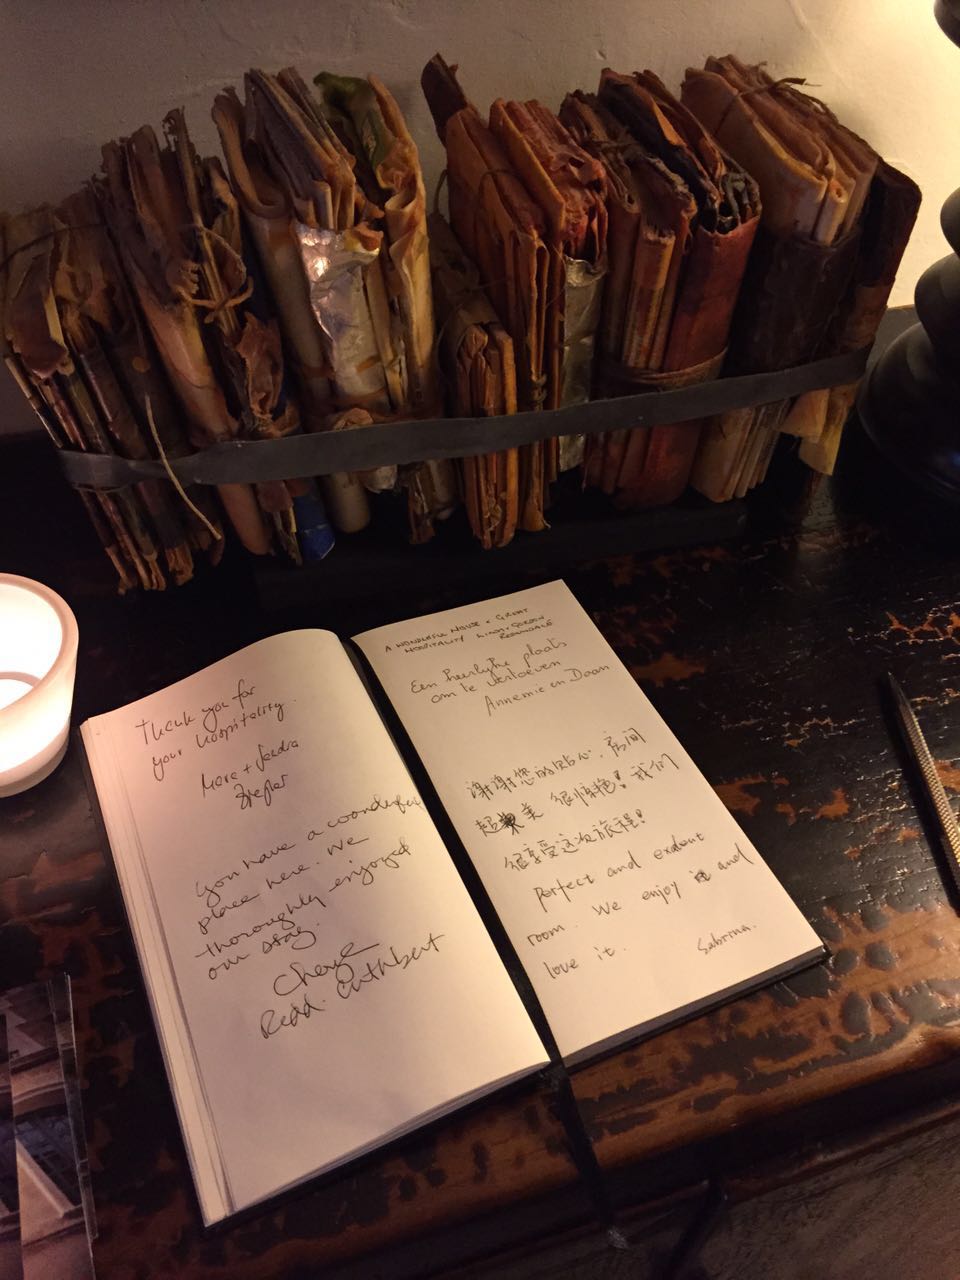 Thank you for
your hospitality.
Marc +
You have a wonderful
place here. We
thoroughly enjoyed
our stay.
Cuthbert
A WONDERFUL HOUSE + GREAT
HOSPITALITY LINDA + GORDON
Een heerlijke plaats
om te vertoeven
Annemie en Daan
谢谢您的贴心，房间
超美 很惊艳！我们
很享受这次旅程！
Perfect and exelent
room. We enjoy it and
love it. Sabrina.